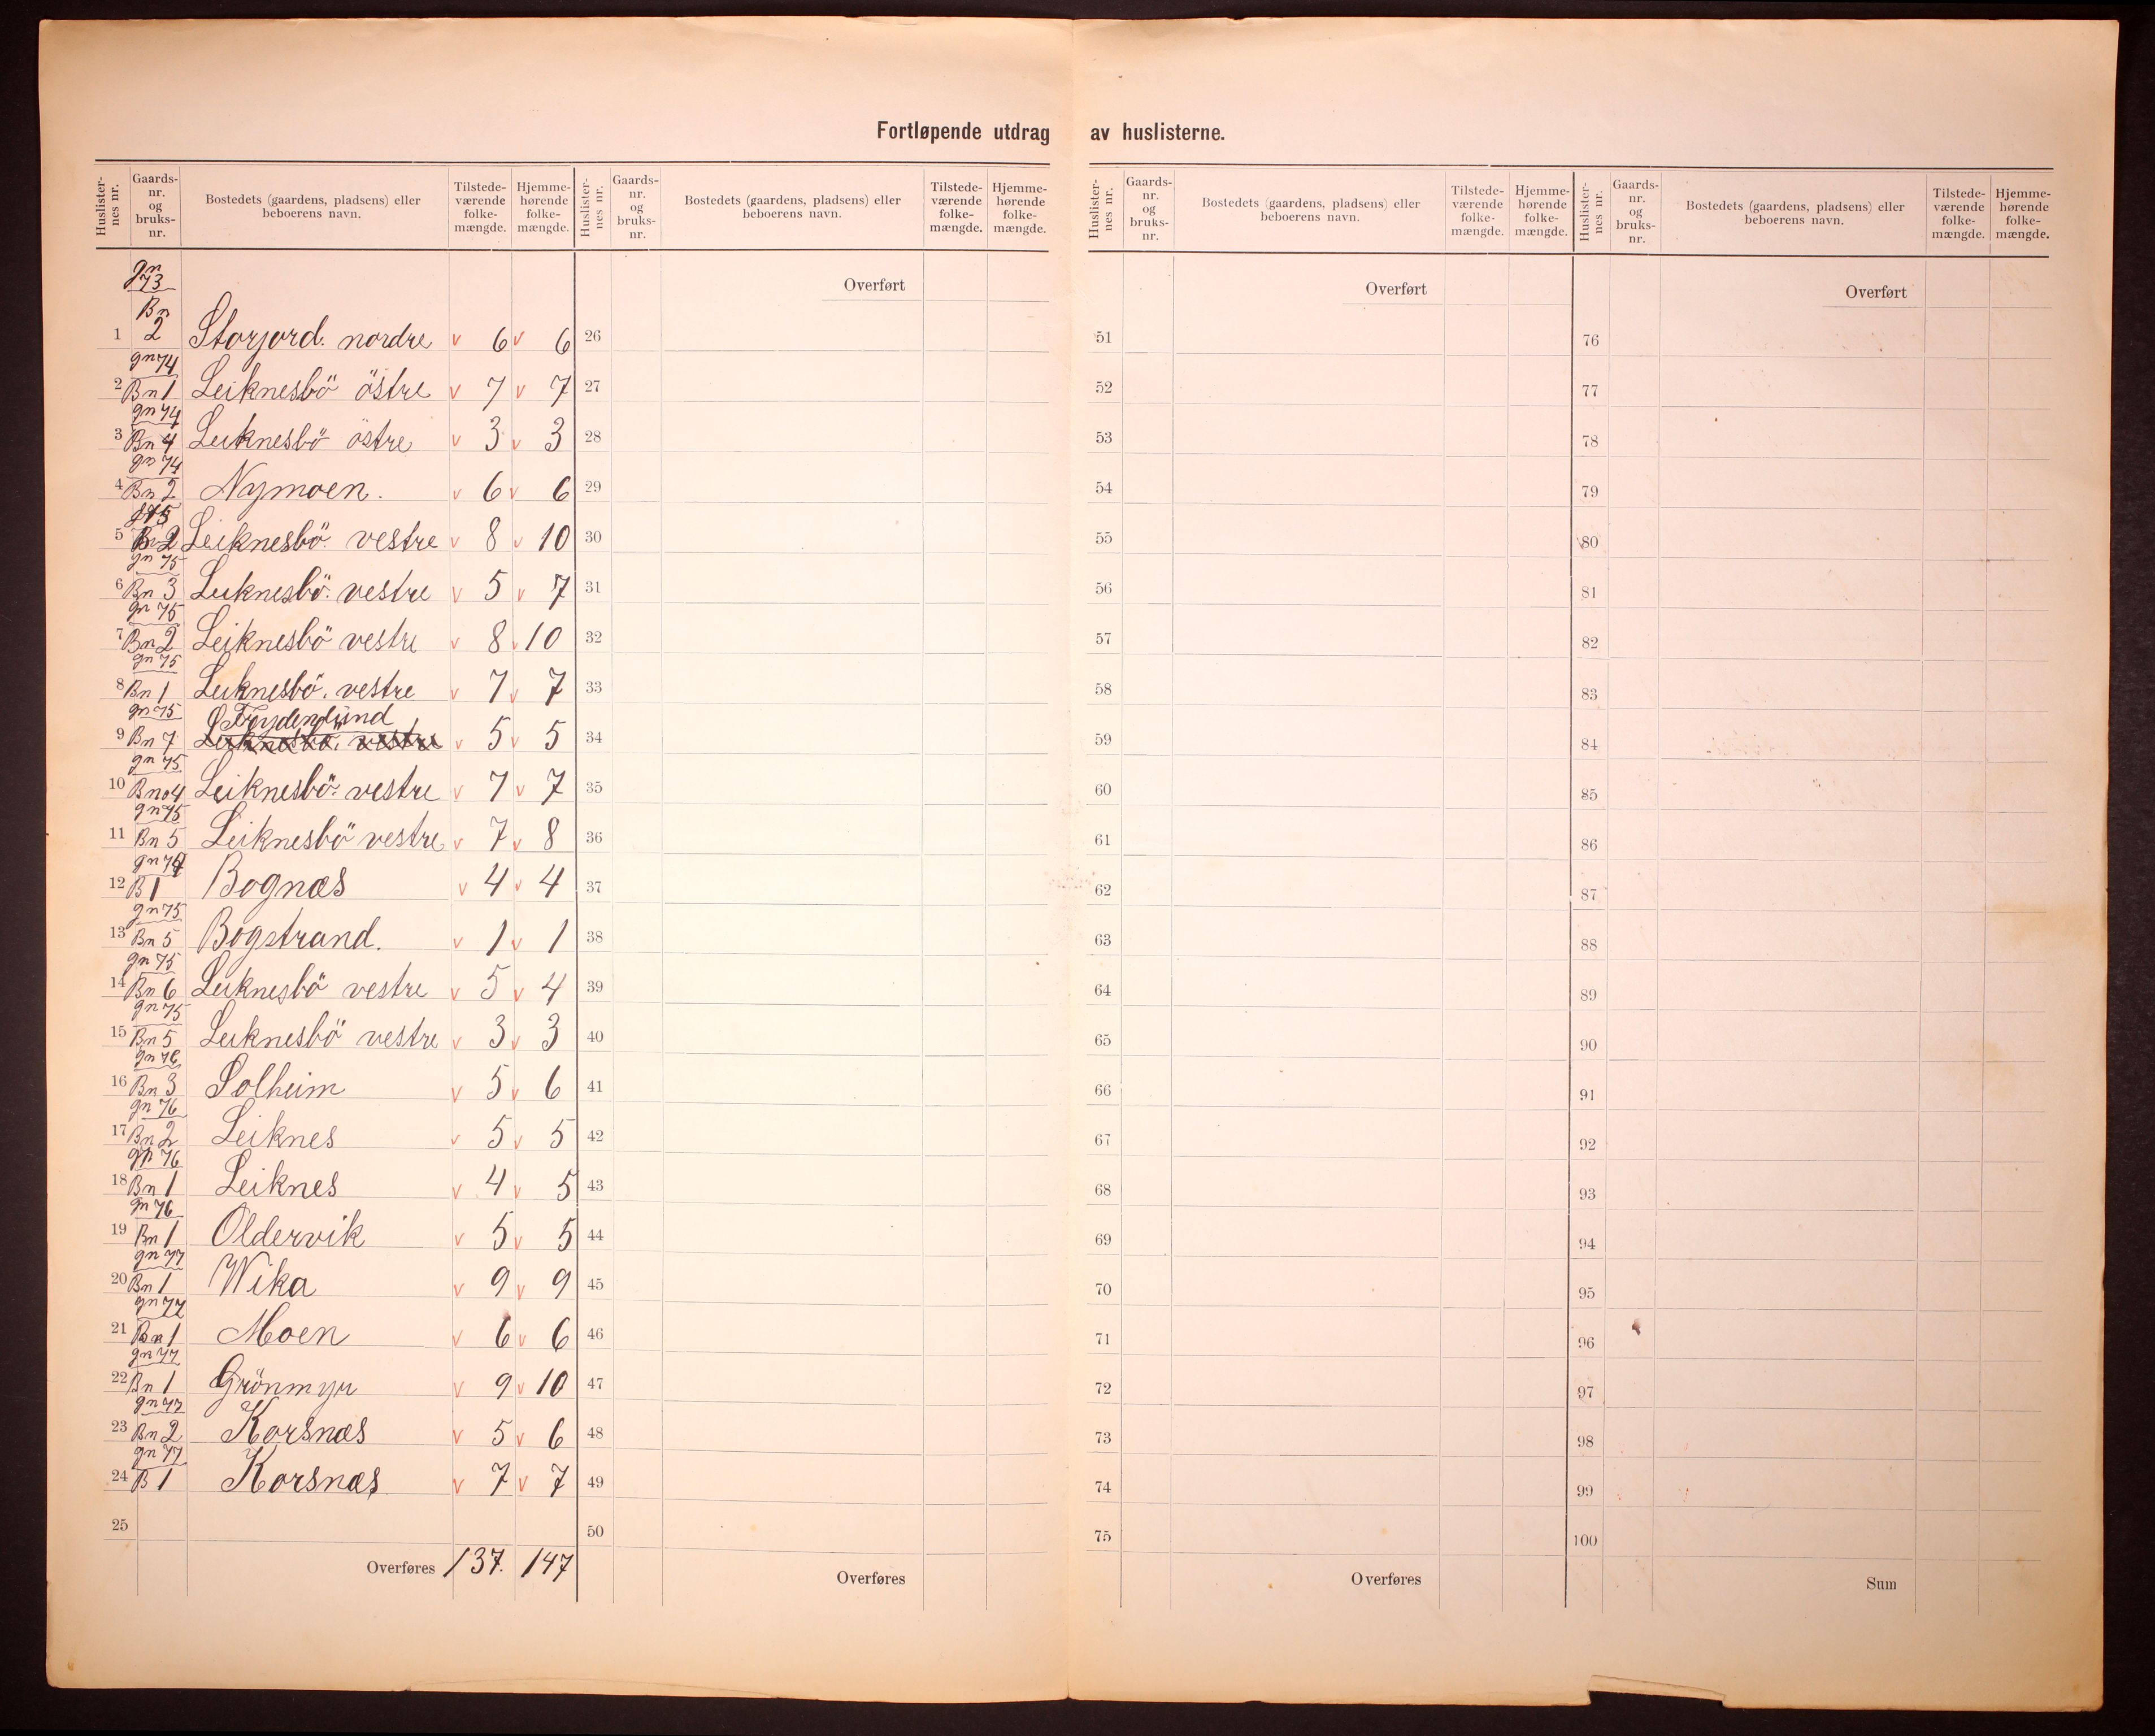 Fortløpende utdrag av huslisterne.
Huslister-nes nr. Gaards-nr. og bruks-nr. Bostedets (gaardens, pladsens) eller beboerens navn. Tilstede-værende folke-mængde. Hjemme-hørende folke-mængde.
gn 73
Bn
1 2 Storjord. nordre v 6 v 6
gn 74
2 Bn 1 Leiknesbö östre v 7 v 7
gn 74
3 Bn 4 Leiknesbö östre v 3 v 3
gn 74
4 Bn 2 Nymoen. v 6 v 6
g 75
5 Bn 2 Leiknesbö. vestre v 8 v 10
gn 75
6 Bn 3 Leiknesbö. vestre v 5 v 7
gn 75
7 Bn 2 Leiknesbö vestre v 8 v 10
gn 75
8 Bn 1 Leiknesbö. vestre v 7 v 7
gn 75 Frydenlund
9 Bn 7 Leiknesbö. vestre v 5 v 5
gn 75
10 Bno 4 Leiknesbö. vestre v 7 v 7
gn 75
11 Bn 5 Leiknesbö vestre v 7 v 8
gn 74
12 B 1 Bognæs v 4 v 4
gn 75
13 Bn 5 Bogstrand. v 1 v 1
gn 75
14 Bn 6 Leiknesbö vestre v 5 v 4
gn 75
15 Bn 5 Leiknesbö vestre v 3 v 3
gn 76
16 Bn 3 Solheim v 5 v 6
gn 76
17 Bn 2 Leiknes v 5 v 5
gn 76
18 Bn 1 Leiknes v 4 v 5
gn 76
19 Bn 1 Oldervik v 5 v 5
gn 77
20 Bn 1 Wika v 9 v 9
gn 77
21 Bn 1 Moen v 6 v 6
gn 77
22 Bn 1 Grönmyr v 9 v 10
gn 77
23 Bn 2 Korsnæs v 5 v 6
gn 77
24 B 1 Korsnæs v 7 v 7
25
Overføres 137. 147
Huslister-nes nr. Gaards-nr. og bruks-nr. Bostedets (gaardens, pladsens) eller beboerens navn. Tilstede-værende folke-mængde. Hjemme-hørende folke-mængde.
Overført
26
27
28
29
30
31
32
33
34
35
36
37
38
39
40
41
42
43
44
45
46
47
48
49
50
Overføres
Huslister-nes nr. Gaards-nr. og bruks-nr. Bostedets (gaardens, pladsens) eller beboerens navn. Tilstede-værende folke-mængde. Hjemme-hørende folke-mængde.
Overført
51
52
53
54
55
56
57
58
59
60
61
62
63
64
65
66
67
68
69
70
71
72
73
74
75
Overføres
Huslister-nes nr. Gaards-nr. og bruks-nr. Bostedets (gaardens, pladsens) eller beboerens navn. Tilstede-værende folke-mængde. Hjemme-hørende folke-mængde.
Overført
76
77
78
79
80
81
82
83
84
85
86
87
88
89
90
91
92
93
94
95
96
97
98
99
100
Sum